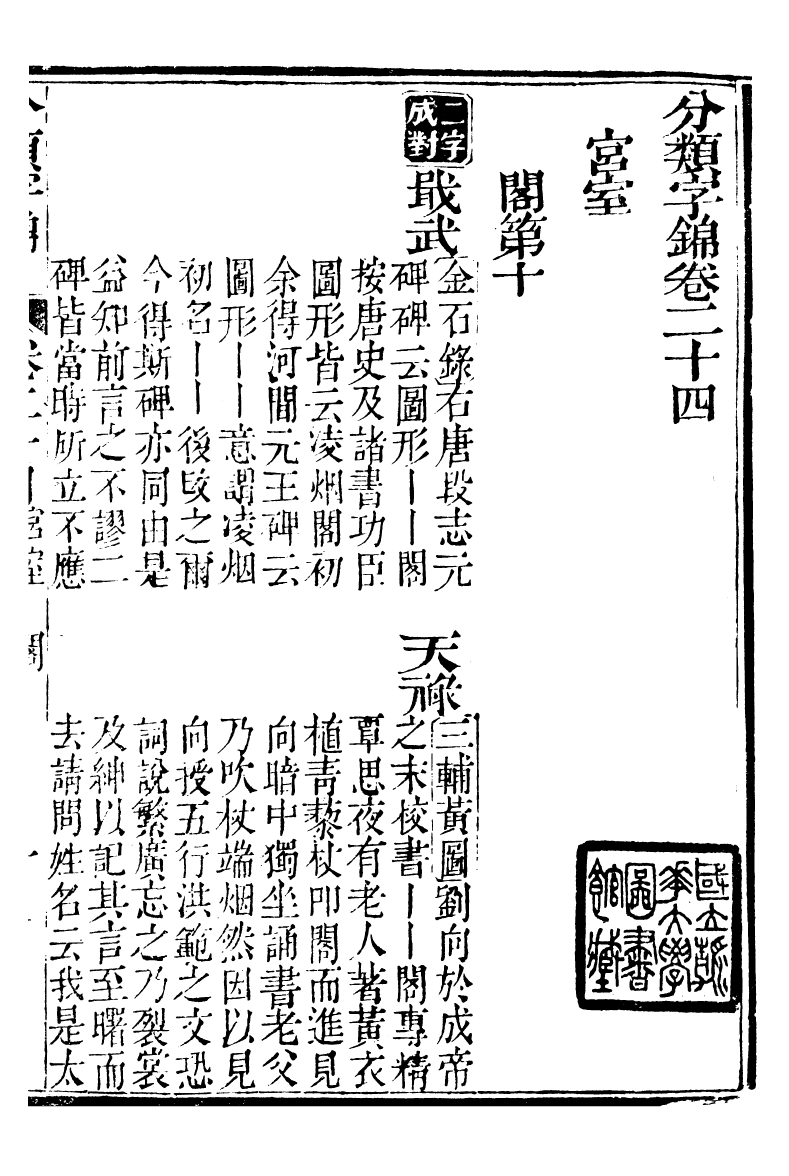 分類字錦卷二十四
宮室
閣第十
二字成對
戢武
金石錄右唐段志元
碑碑云圖形丨丨閣
按唐史及諸書功臣
圖形皆云凌烟閣初
余得河間元王碑云
圖形丨丨意謂凌烟
初名丨丨後改之爾
今得斯碑亦同由是
益知前言之不謬二
碑皆當時所立不應
天祿
三輔黃圖劉向於成帝
之末校書丨丨閣專精
覃思夜有老人著黃衣
植青藜杖叩閣而進見
向暗中獨坐誦書老父
乃吹杖端烟然因以見
向授五行洪範之文恐
詞說繁廣忘之乃裂裳
及紳以記其言至曙而
去請問姓名云我是太
宮室 閣
國立清華大學圖書館藏